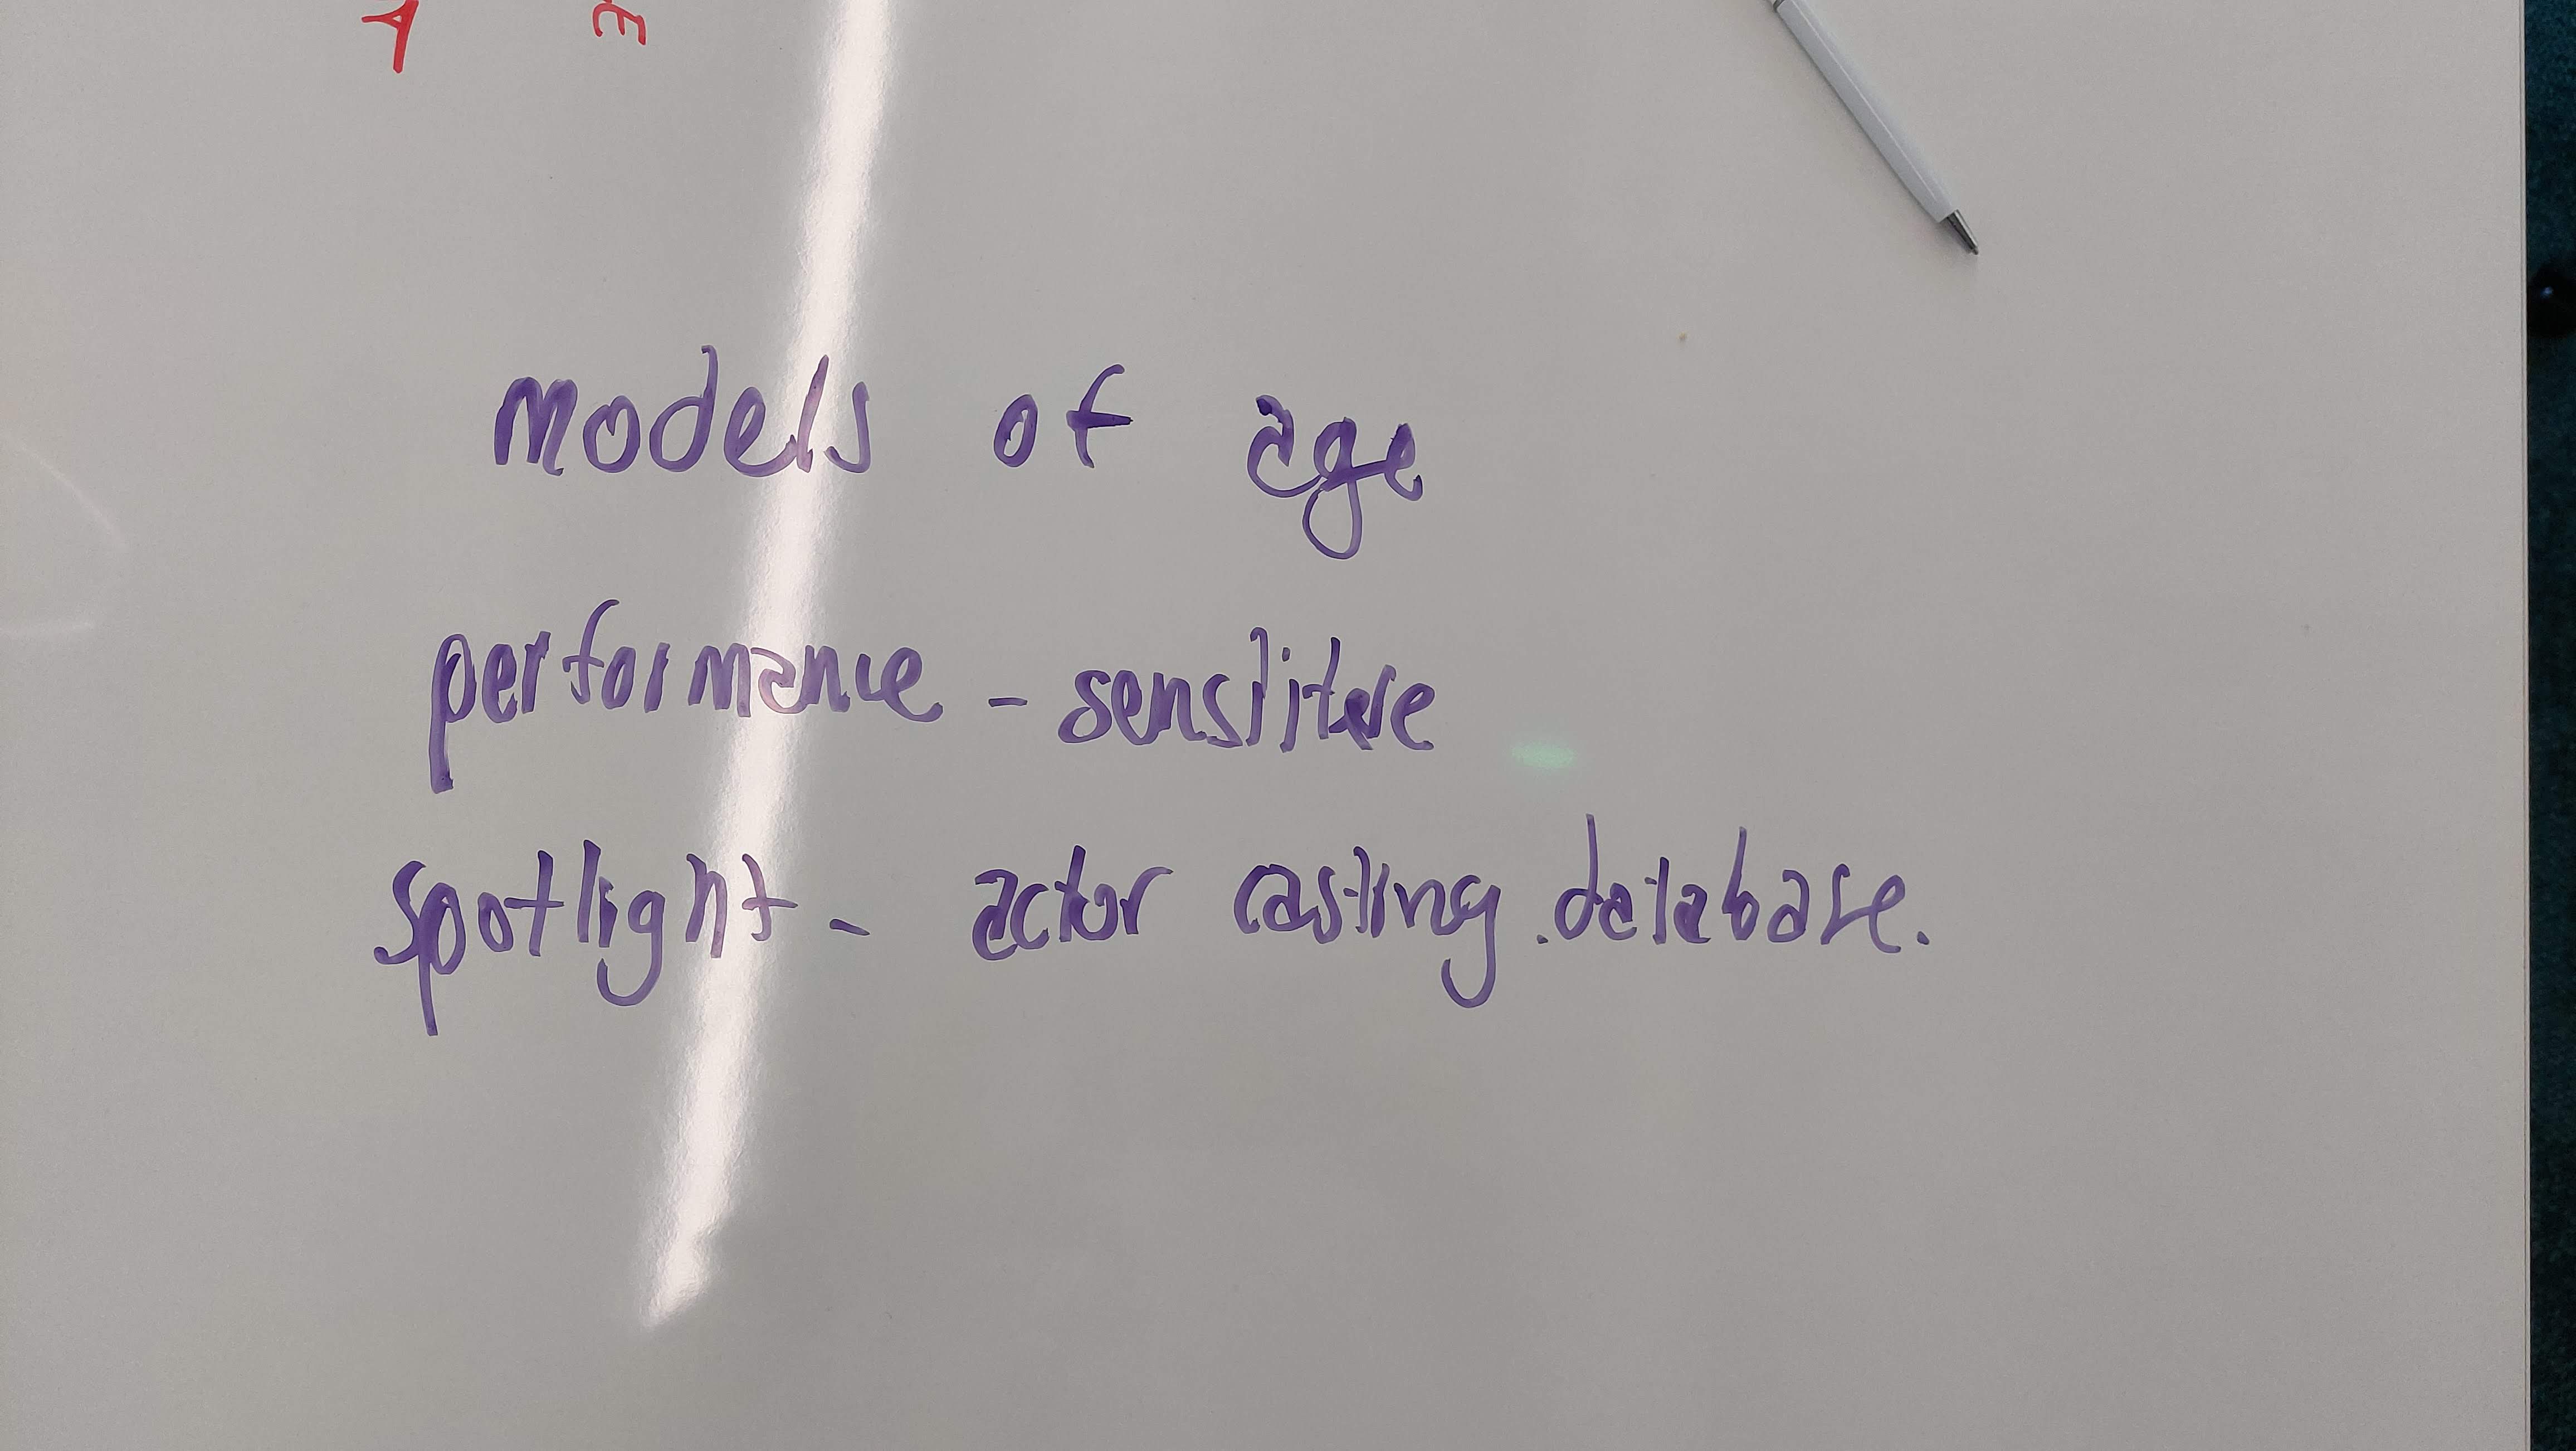 models of age
performance - sensitive
spotlight - actor casting database.